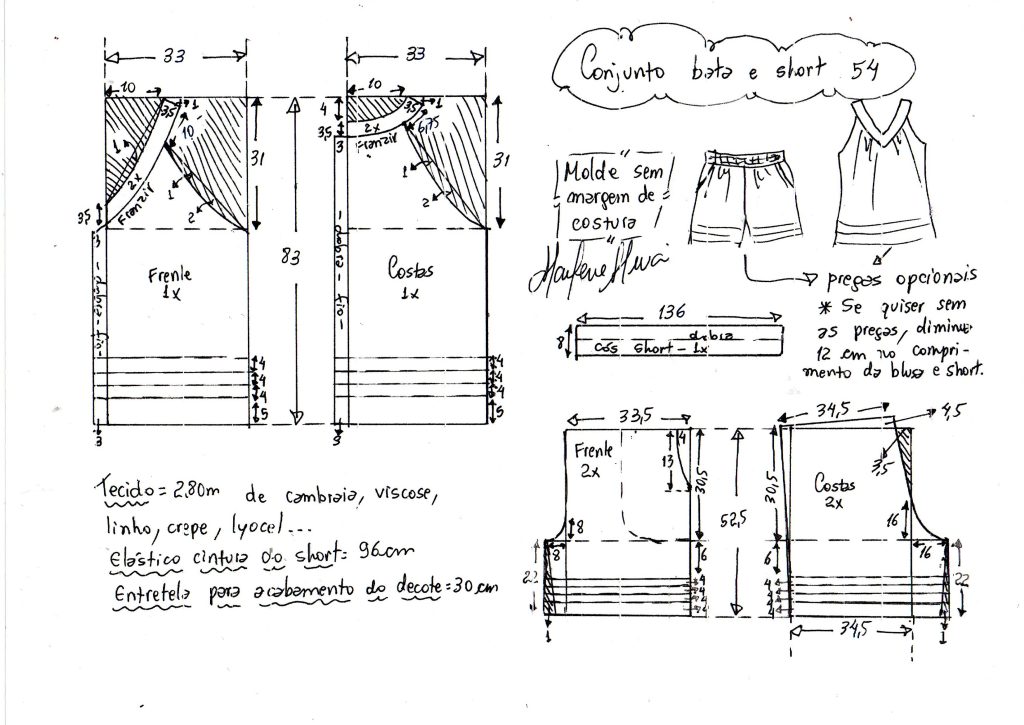 Conjunto bata e short 54
33
10
3,5
1
10
1
2x
Franzir
1
2
31
3,5
3
Frente
1x
- dobra - fio -
4
4
4
5
3
83
33
10
4
3,5
1
3,5
2x
Franzir
6,75
1
2
31
3
Costas
1x
- dobra - fio -
4
4
4
5
3
"Molde sem
margem de
costura"
preças opcionais
* Se quiser sem
as preças, diminue
12 cm no compri-
mento da blusa e short.
136
8
dobra
cós short - 1x
33,5
Frente
2x
4
13
30,5
8
8
6
22
4
4
4
4
1
52,5
34,5
4,5
3,5
Costas
2x
30,5
16
16
6
4
4
4
4
22
34,5
1
Tecido = 2,80m de cambraia, viscose,
linho, crepe, lyocel...
Elástico cintura do short = 96cm
Entretela para acabamento do decote = 30 cm